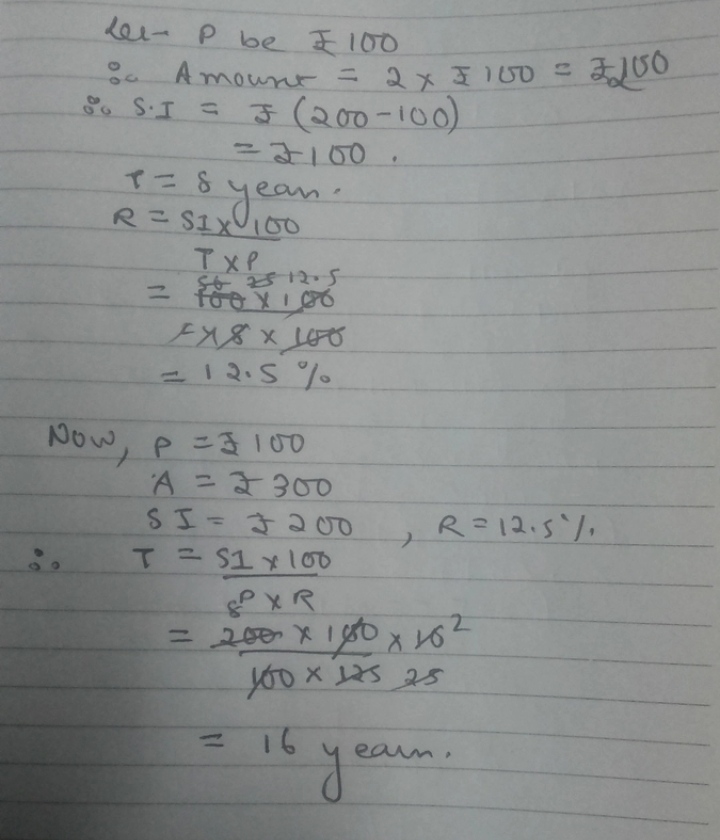 Let P be ₹ 100
∴ Amount = 2 x ₹ 100 = ₹200
∴ S.I = ₹ (200-100)
= ₹100.
T = 8 years.
R = SI x 100
T x P
50 25 12.5
= 100 x 100
x 8 x 100
= 12.5 %
Now, P = ₹ 100
A = ₹ 300
SI = ₹ 200 , R = 12.5%
∴ T = SI x 100
P x R
8
= 200 x 100 x 10 2
100 x 125 25
= 16 years.